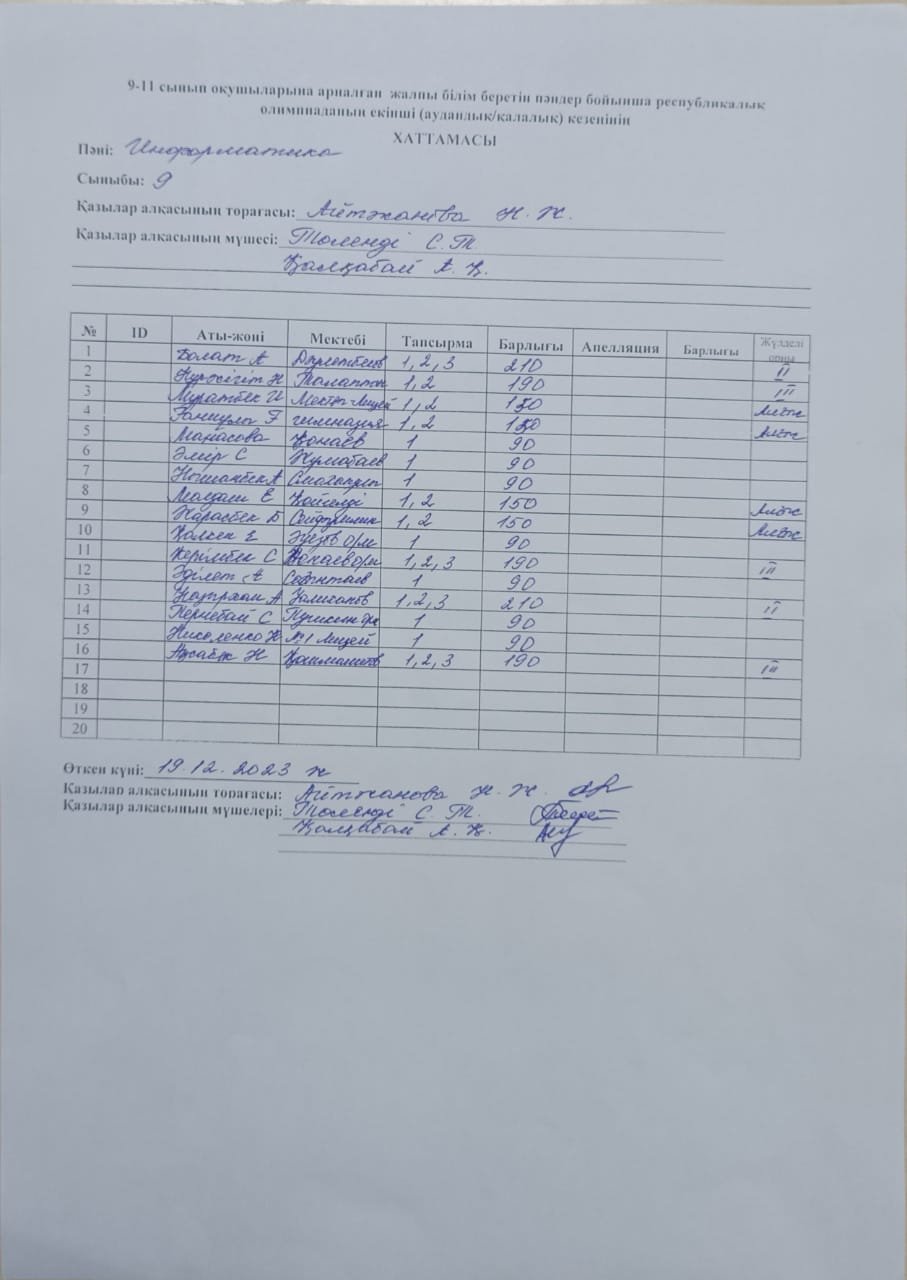 9-11 сынып оқушыларына арналған жалпы білім беретін пәндер бойынша республикалық
олимпиаданың екінші (аудандық/қалалық) кезеңінің
ХАТТАМАСЫ
Пәні: Информатика
Сыныбы: 9
Қазылар алқасының төрағасы: Айтжанова Н. Ж.
Қазылар алқасының мүшесі: Төленді С. Т.
Қалқабай А. Қ.
№ ID Аты-жөні Мектебі Тапсырма Барлығы Апелляция Барлығы Жүлделі орны
1 Болат А 1, 2, 3 210 II
2 Талаптан 1, 2 190 III
3 Мұратбек Мектеп Лицей 1, 2 150
4 гимназия 1, 2 150
5 Манасова Қонаев 1 90
6 Әмір С Жұмабаев 1 90
7 1 90
8 1, 2 150
9 Қарасбек Б Сейфуллин 1, 2 150
10 1 90
11 Керімбек С 1, 2, 3 190 III
12 Әділет А 1 90
13 1, 2, 3 210 II
14 Пернебай С 1 90
15 Николенко №1 Лицей 1 90
16 1, 2, 3 190 III
17
18
19
20
Өткен күні: 19.12.2023 ж
Қазылар алқасының төрағасы: Айтжанова Н. Ж.
Қазылар алқасының мүшелері: Төленді С. Т.
Қалқабай А. Қ.